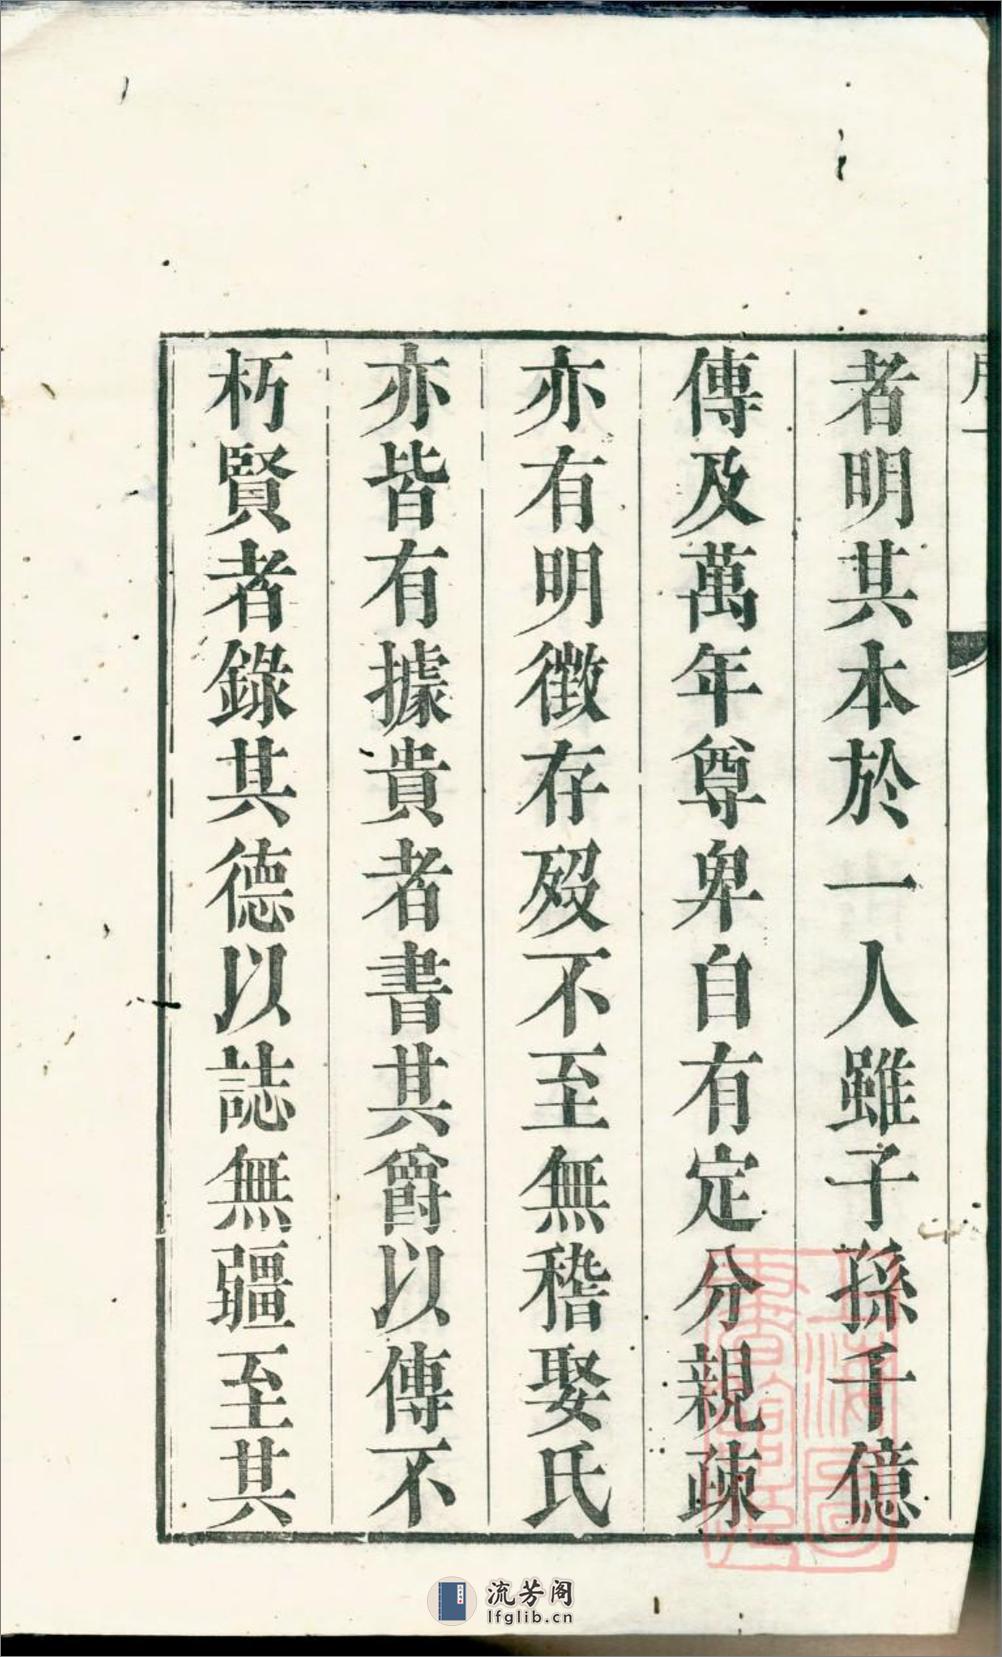 者明其本於一人雖子孫千億
傳及萬年尊卑自有定分親疎
亦有明徵存歿不至無稽娶氏
亦皆有據貴者書其爵以傳不
朽賢者錄其德以誌無疆至其
上海圖書館藏
流芳阁
lfglib.cn